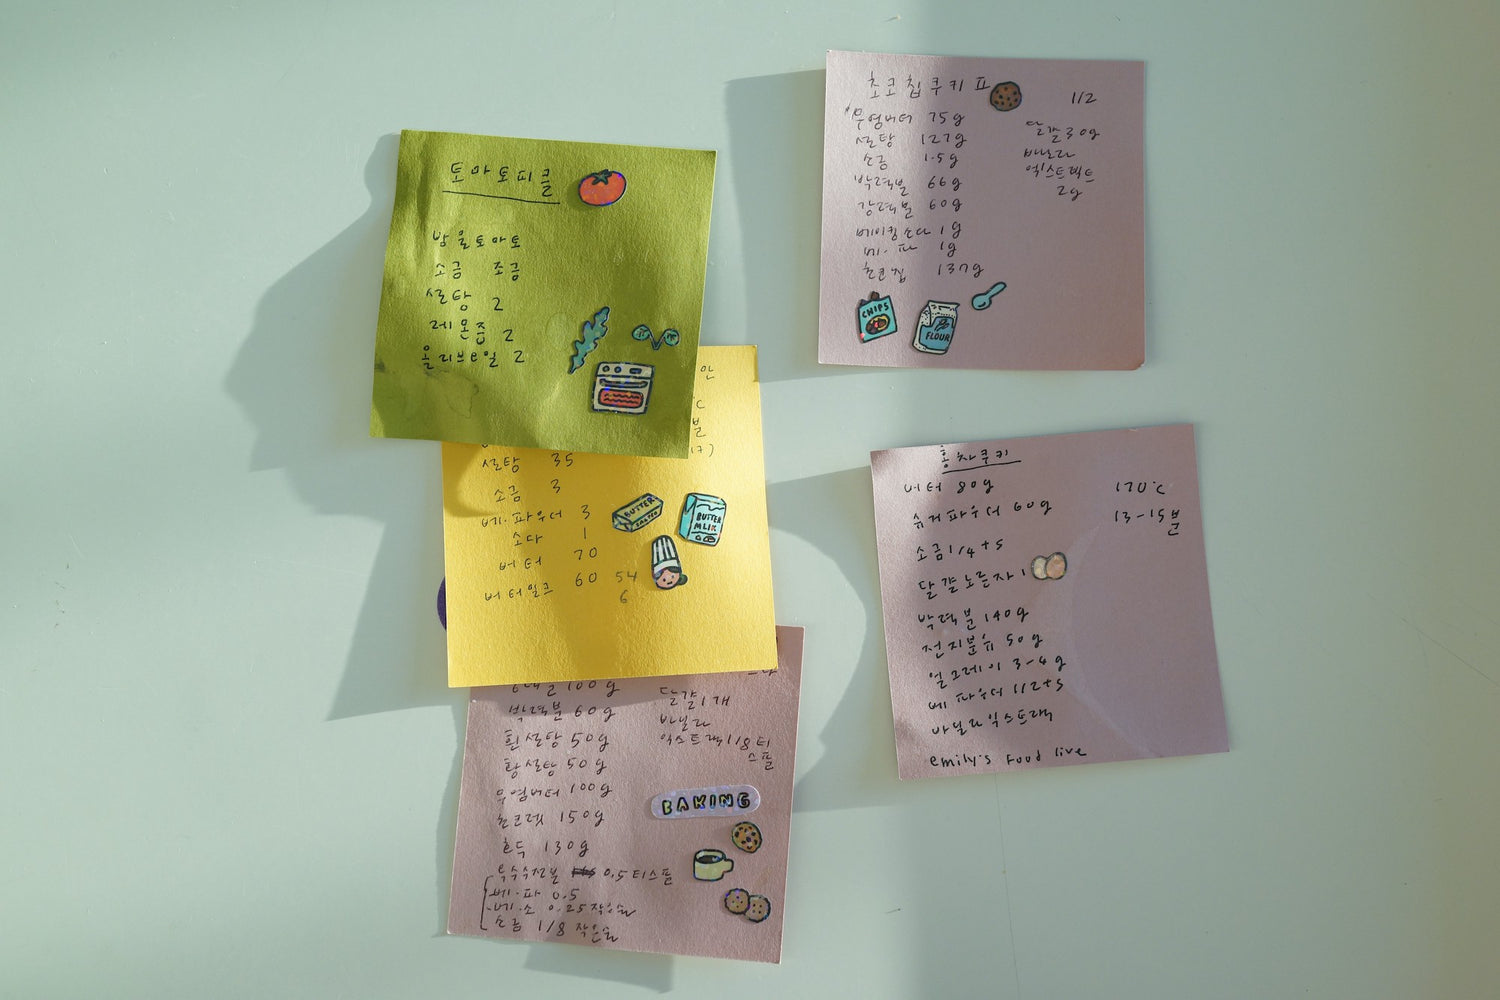 토마토피클
방울토마토
소금 조금
설탕 2
레몬즙 2
올리브오일 2
초코칩쿠키
1/2
무염버터 75g
설탕 127g
소금 1.5g
박력분 66g
강력분 60g
베이킹소다 1g
베.파 1g
초코칩 137g
달걀30g
바닐라
엑스트랙트
2g
CHIPS
FLOUR
설탕 35
소금 3
베.파우더 3
소다 1
버터 70
버터밀크 60 54
6
BUTTER
BUTTER
MLIK
홍차쿠키
버터 80g
슈거파우더 60g
소금1/4ts
달걀노른자1
박력분140g
전지분유 50g
얼그레이 3-4g
베 파우더 1/2ts
바닐라익스트랙
emily's Food live
170°C
13-15분
100g
박력분 60g
흰설탕 50g
황설탕 50g
무염버터 100g
초코렛 150g
호두 130g
옥수수전분 0.5티스푼
베.파 0.5
베.소 0.25작은술
소금 1/8 작은술
달걀1개
바닐라
익스트랙1/8티
스푼
BAKING